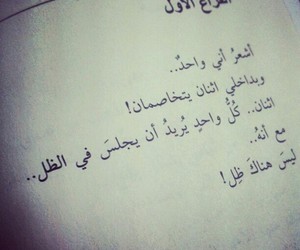 الفراغ الأول
أشعرُ أني واحدٌ..
وبداخلي اثنان يتخاصمان!
اثنان.. كُلُّ واحدٍ يُريدُ أن يجلسَ في الظل..
مع أنهُ..
ليسَ هناكَ ظِل!